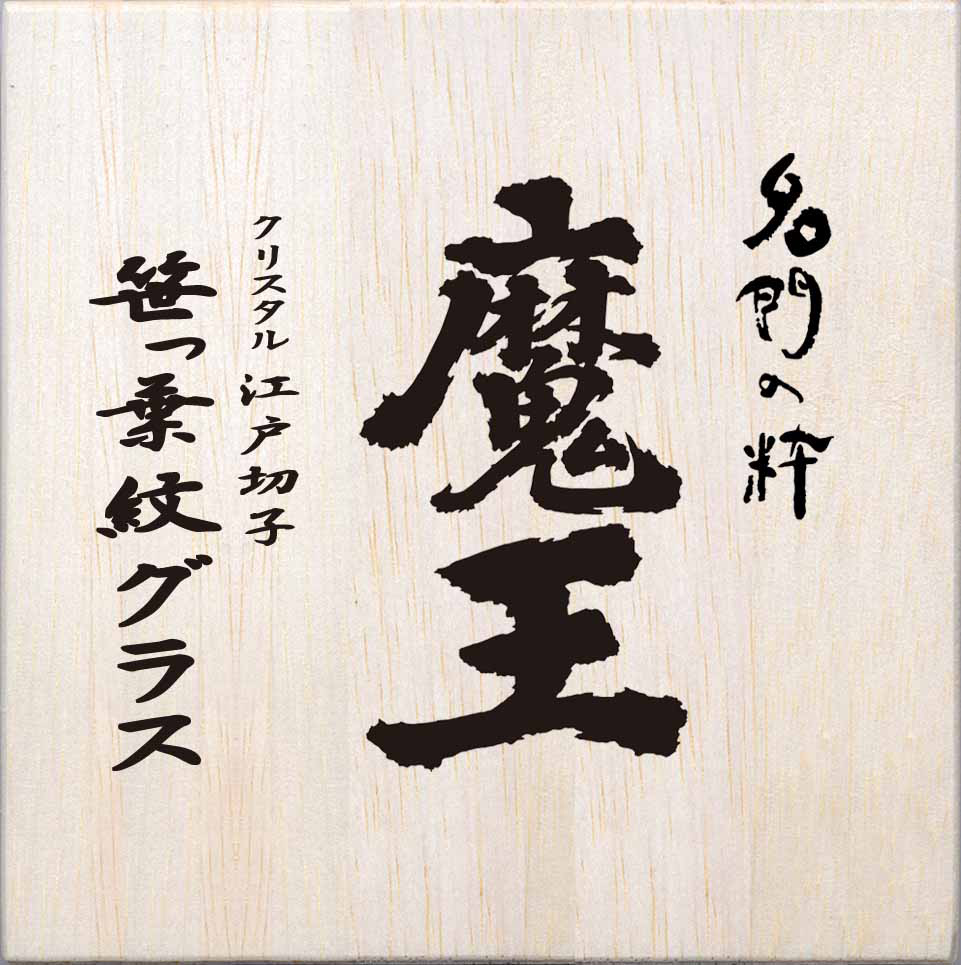 名門の粋
魔王
クリスタル 江戸切子
笹っ葉紋グラス